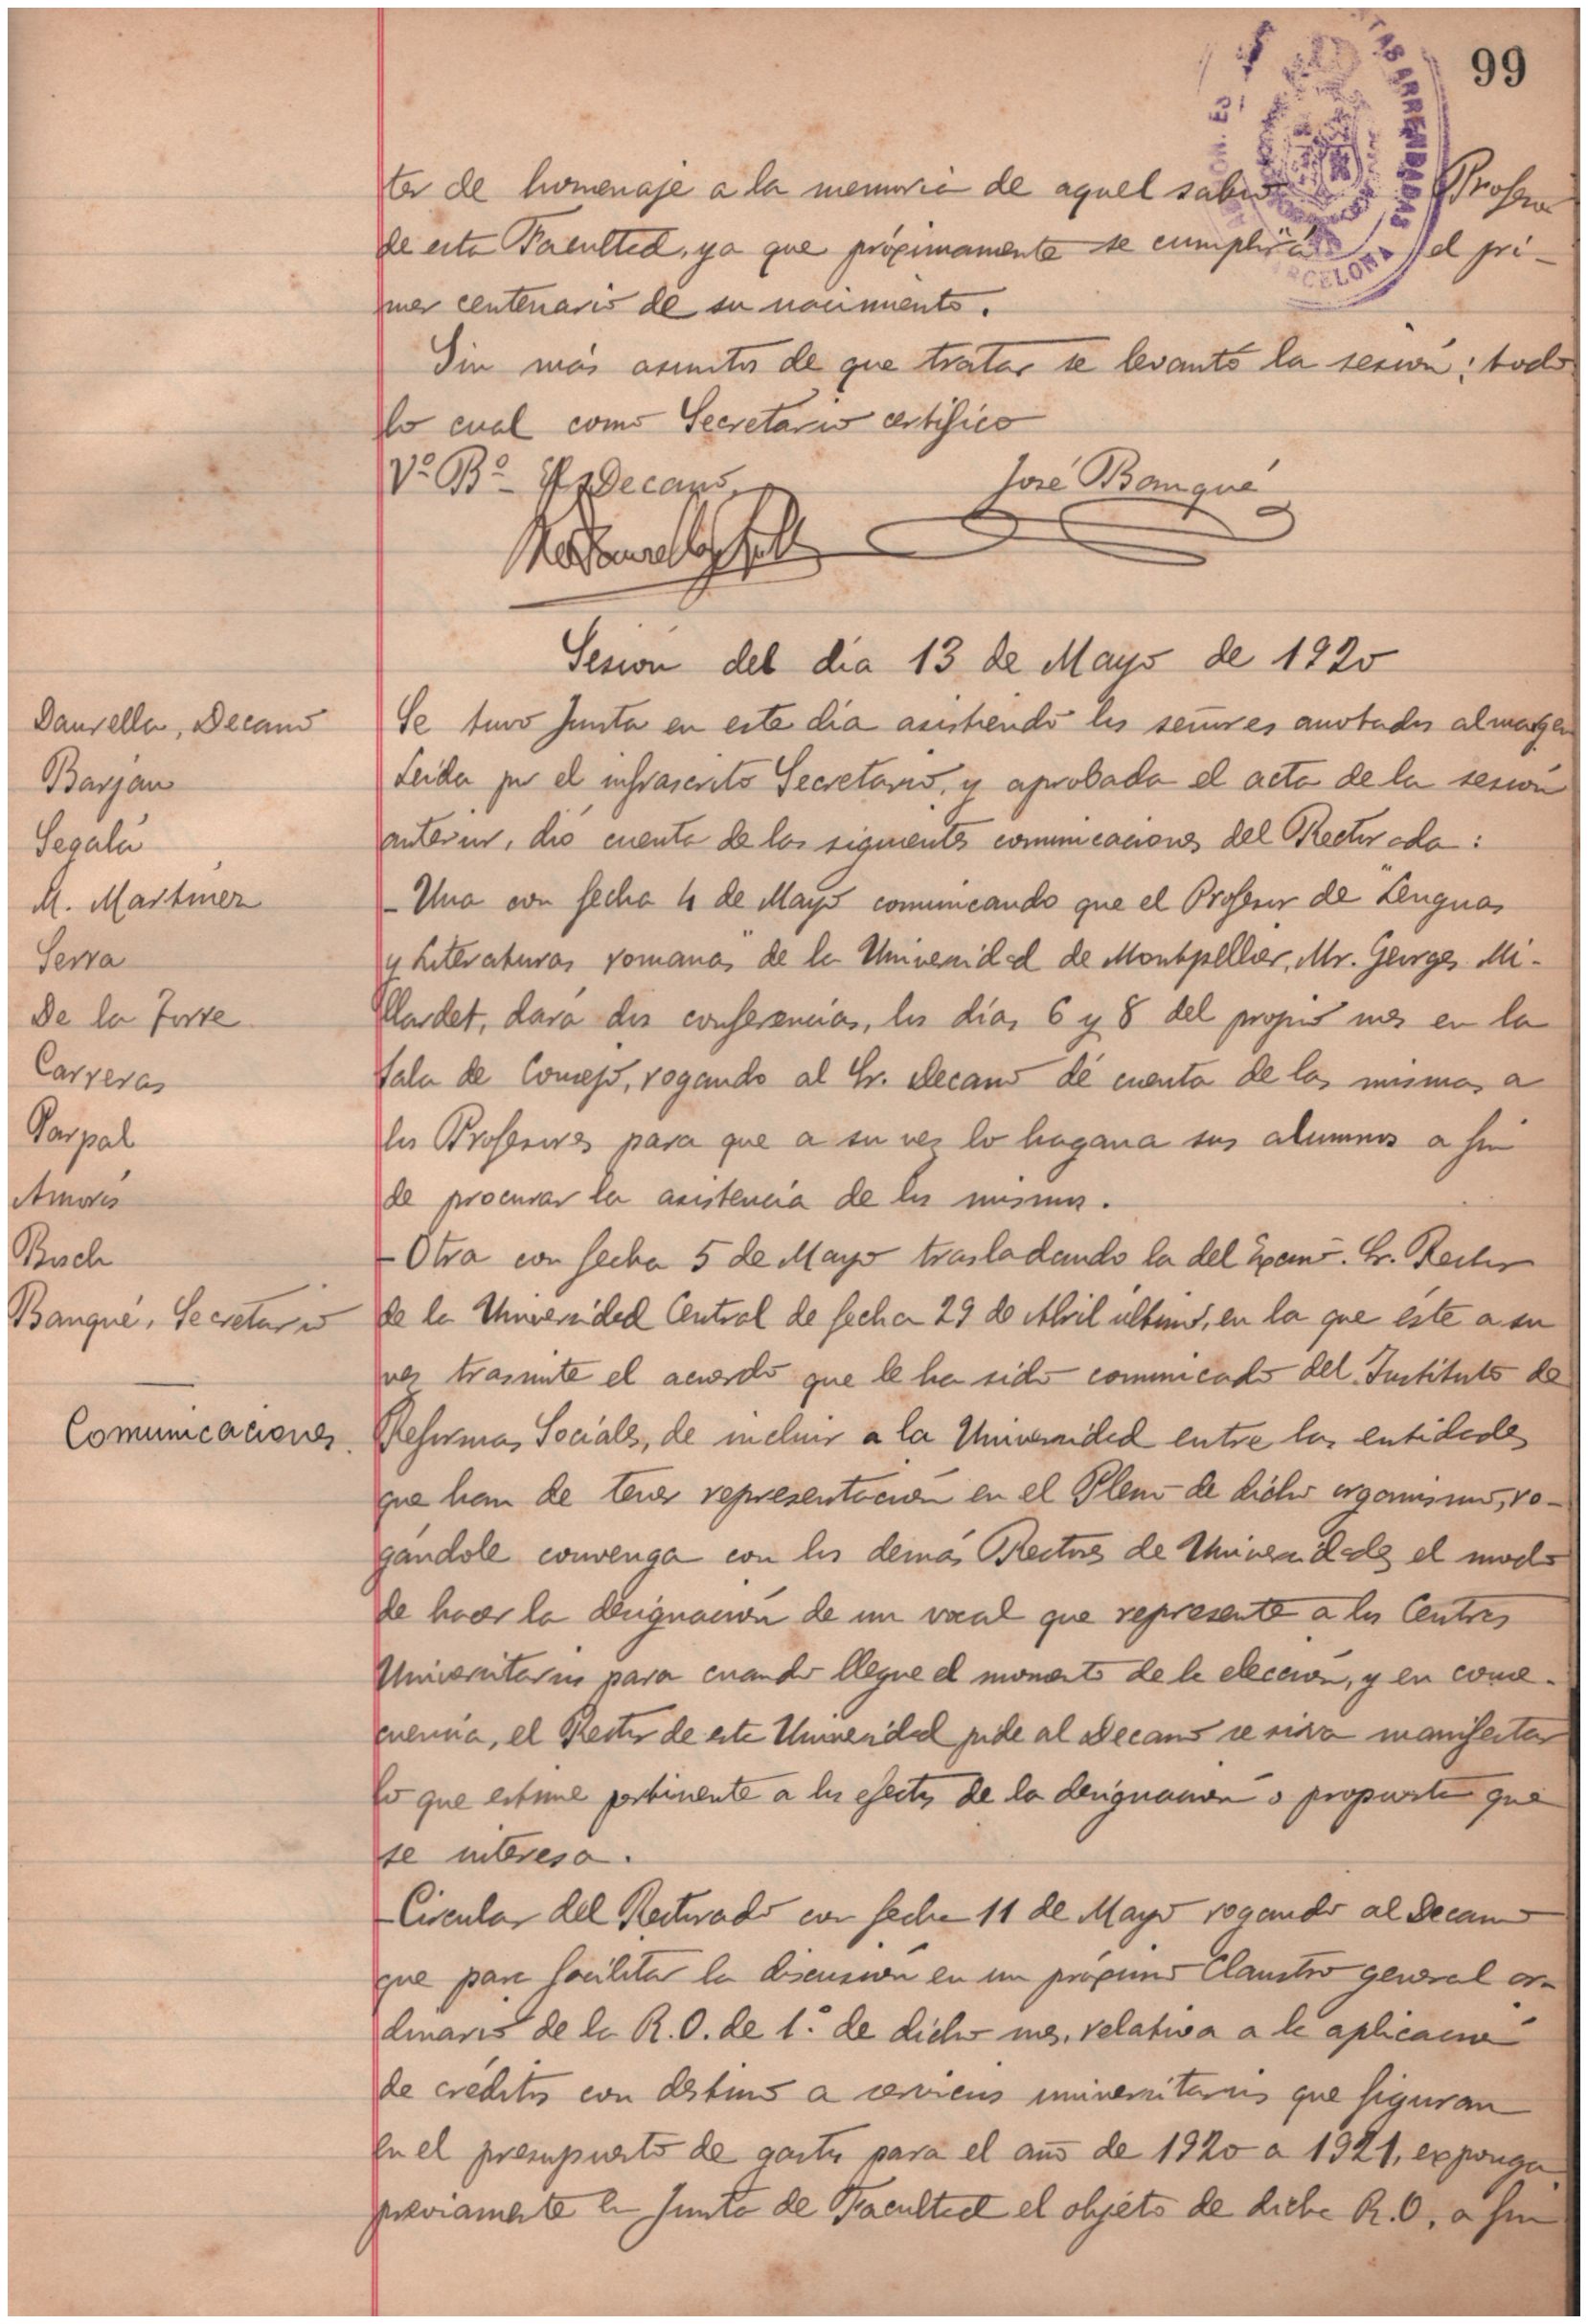 99
ter de homenaje a la memoria de aquel sabio Profesor
de esta Facultad, ya que próximamente se cumplirá el pri-
mer centenario de su nacimiento.
Sin más asuntos de que tratar se levantó la sesión; todo
lo cual como Secretario certifico
Vº Bº Decano
José Banqué
Sesión del día 13 de Mayo de 1920
Daurella, Decano
Barjau
Segalá
M. Martínez
Serra
De la Torre
Carreras
Parpal
Amorós
Bosch
Banqué, Secretario
Comunicaciones.
Se tuvo Junta en este día asistiendo los señores anotados al margen
Leída por el infrascrito Secretario, y aprobada el acta de la sesión
anterior, dió cuenta de las siguientes comunicaciones del Rectorado:
- Una con fecha 4 de Mayo comunicando que el Profesor de "Lenguas
y Literaturas romanas" de la Universidad de Montpellier, Mr. Georges Mi-
llardet, dará dos conferencias, los días 6 y 8 del propio mes en la
Sala de Consejo, rogando al Sr. Decano dé cuenta de las mismas a
los Profesores para que a su vez lo hagan a sus alumnos a fin
de procurar la asistencia de los mismos.
- Otra con fecha 5 de Mayo trasladando la del Excmo. Sr. Rector
de la Universidad Central de fecha 29 de Abril último, en la que éste a su
vez trasmite el acuerdo que le ha sido comunicado del Instituto de
Reformas Sociales, de incluir a la Universidad entre las entidades
que han de tener representación en el Pleno de dicho organismo, ro-
gándole convenga con los demás Rectores de Universidades el modo
de hacer la designación de un vocal que represente a los Centros
Universitarios para cuando llegue el momento de la elección, y en conse-
cuencia, el Rector de esta Universidad pide al Decano se sirva manifestar
lo que estime pertinente a los efectos de la designación o propuesta que
se interesa.
- Circular del Rectorado con fecha 11 de Mayo rogando al Decano
que para facilitar la discusión en un próximo Claustro general or-
dinario de la R.O. de 1.º de dicho mes, relativa a la aplicación
de créditos con destino a servicios universitarios que figuran
en el presupuesto de gastos para el año de 1920 a 1921, exponga
previamente en Junta de Facultad el objeto de dicha R.O, a fin